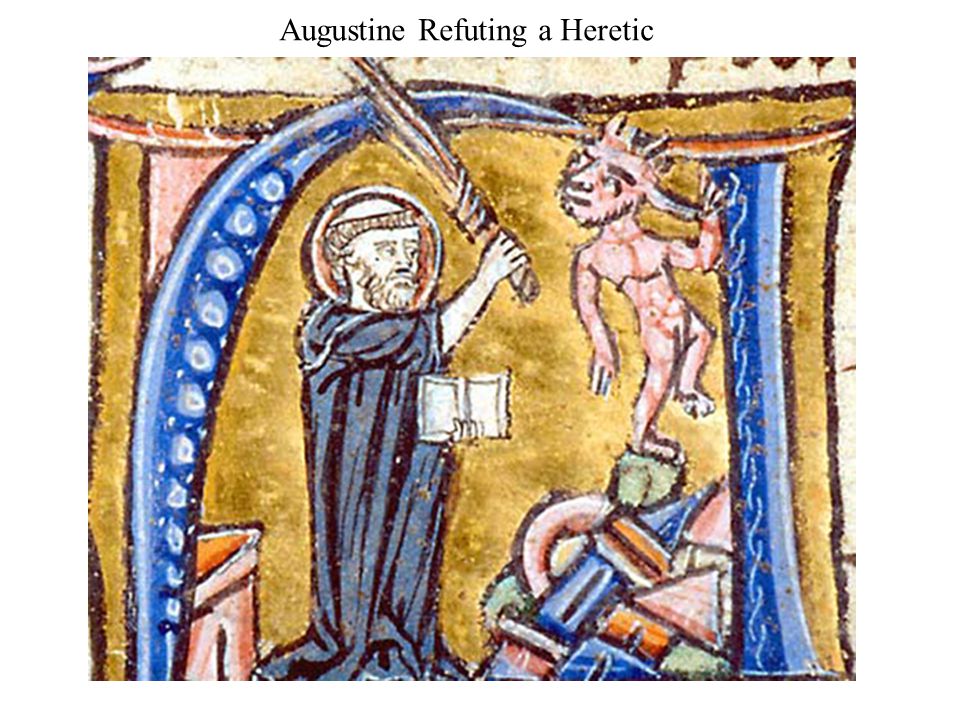 Augustine Refuting a Heretic